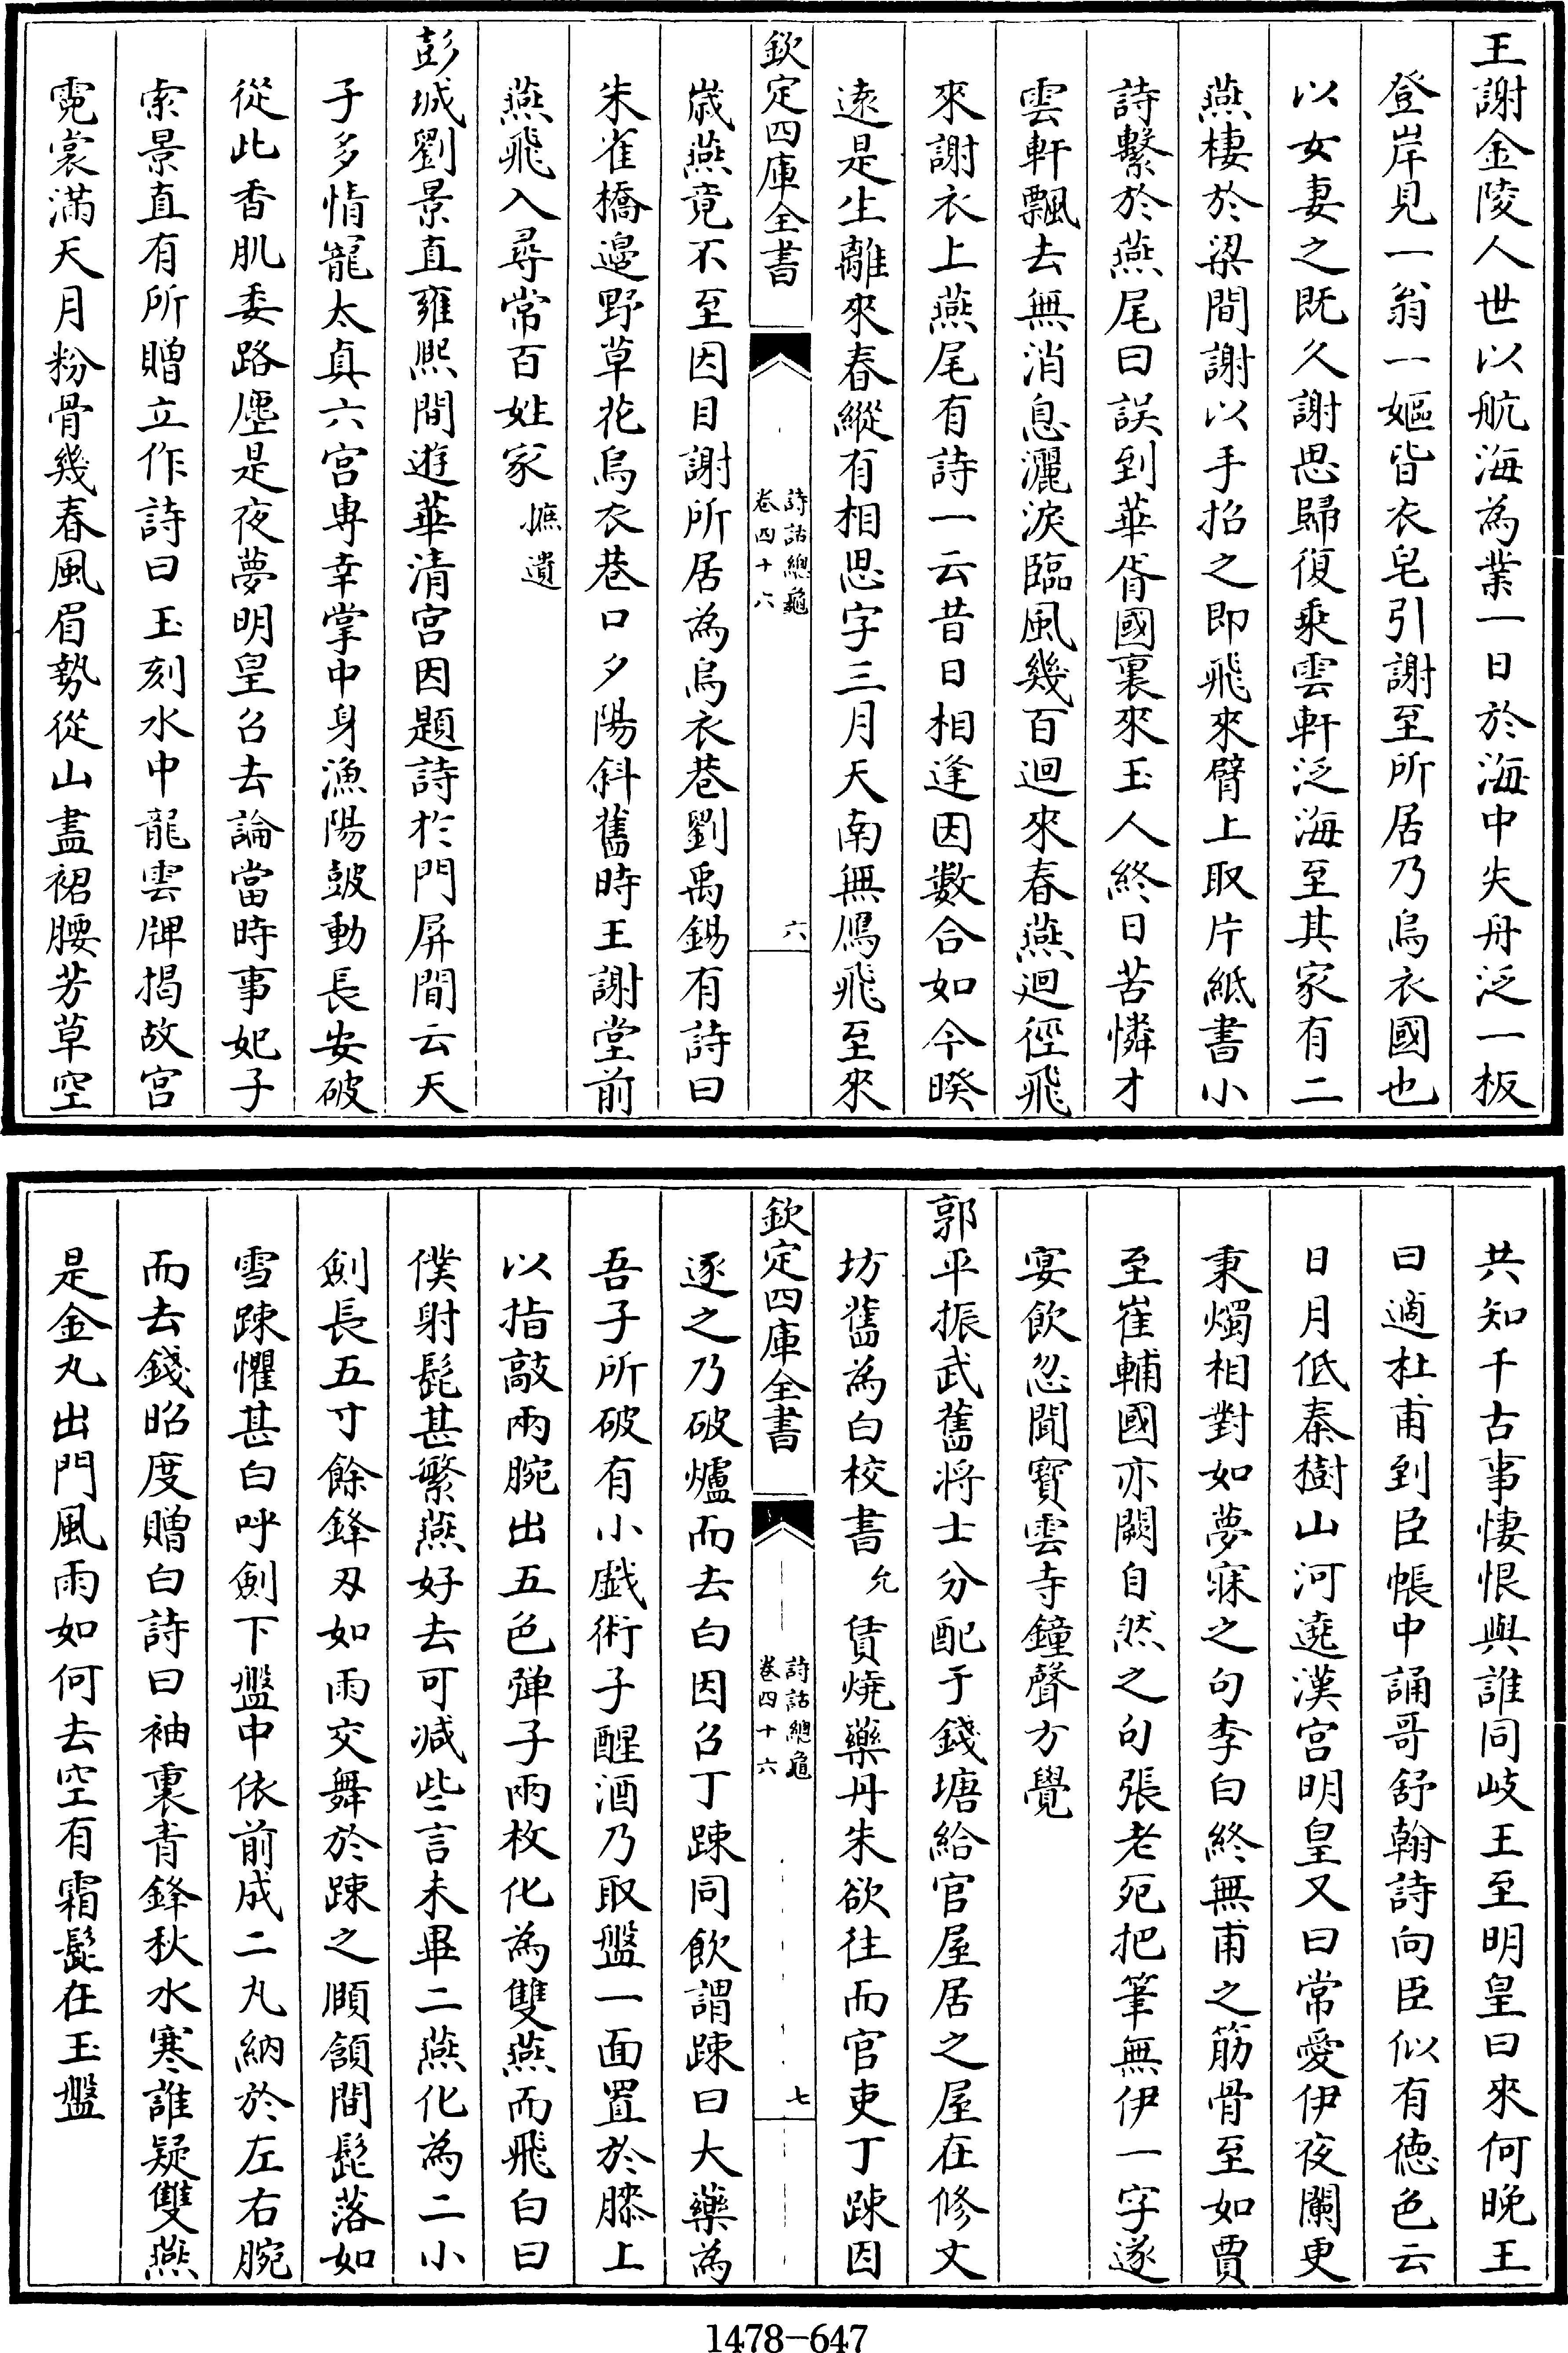 王謝金陵人世以航海為業一日於海中失舟泛一板
登岸見一翁一嫗皆衣皂引謝至所居乃烏衣國也
以女妻之既久謝思歸復乘雲軒泛海至其家有二
燕棲於梁間謝以手招之即飛來臂上取片紙書小
詩繫於燕尾曰誤到華胥國裏來玉人終日苦憐才
雲軒飄去無消息灑淚臨風幾百迴來春燕迴徑飛
來謝衣上燕尾有詩一云昔日相逢因數合如今暌
遠是生離來春縱有相思字三月天南無鴈飛至來
欽定四庫全書
詩話總龜
卷四十六
六
嵗燕竟不至因目謝所居為烏衣巷劉禹錫有詩曰
朱雀橋邉野草花烏衣巷口夕陽斜舊時王謝堂前
燕飛入尋常百姓家摭遺
彭城劉景直雍熙間遊華清宫因題詩於門屏間云天
子多情寵太真六宫専幸掌中身漁陽鼓動長安破
從此香肌委路塵是夜夢明皇召去論當時事妃子
索景直有所贈立作詩曰玉刻水中龍雲牌揭故宫
霓裳滿天月粉骨幾春風眉勢從山盡裙腰芳草空
共知千古事悽恨與誰同岐王至明皇曰來何晚王
曰適杜甫到臣帳中誦哥舒翰詩向臣似有德色云
日月低秦樹山河遶漢宫明皇又曰常愛伊夜闌更
秉燭相對如夢寐之句李白終無甫之筋骨至如賈
至崔輔國亦闕自然之句張老死把筆無伊一字遂
宴飲忽聞寳雲寺鐘聲方覺
郭平振武舊将士分配于錢塘給官屋居之屋在修文
坊舊為白校書允賃燒藥丹朱欲往而官吏丁踈因
欽定四庫全書
詩話總龜
卷四十六
七
逐之乃破爐而去白因召丁踈同飲謂踈曰大藥為
吾子所破有小戯術子醒酒乃取盤一面置於膝上
以指敲兩腕出五色弾子兩枚化為雙燕而飛白曰
僕射髭甚繁燕好去可减些言未畢二燕化為二小
劍長五寸餘鋒刄如雨交舞於踈之頤頷間髭落如
雪踈懼甚白呼劍下盤中依前成二丸納於左右腕
而去錢昭度贈白詩曰袖裏青鋒秋水寒誰疑雙燕
是金丸出門風雨如何去空有霜髭在玉盤
1478-647